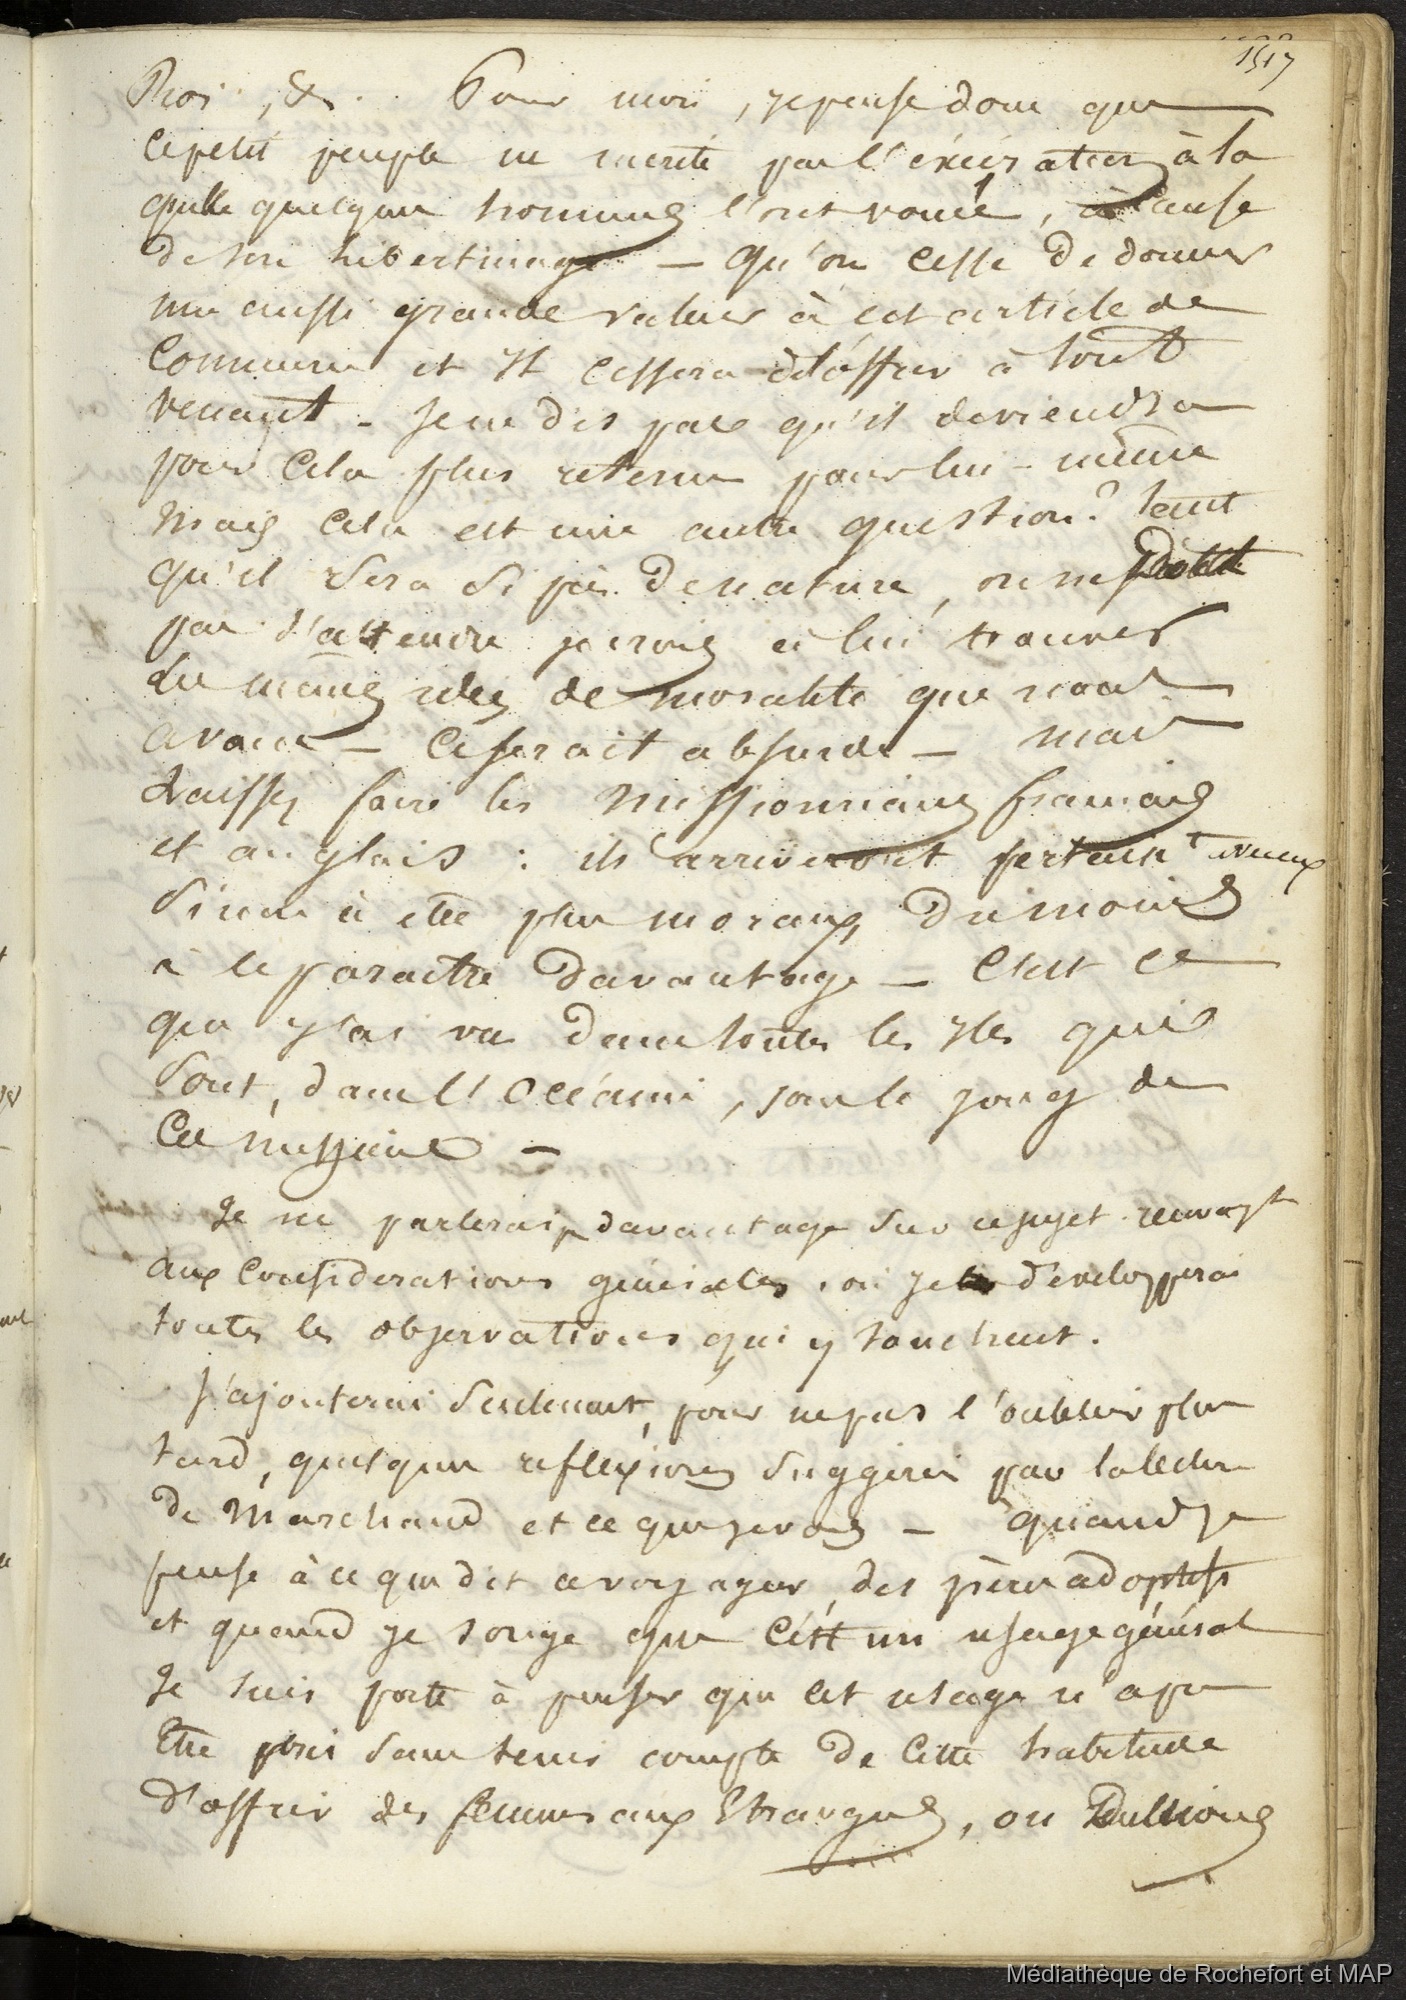 1517
Roi, &. Pour moi, je pense donc que
ce petit peuple ne mérite pas l'exécration à la
quelle quelques hommes l'ont voué, à cause
de son libertinage — Qu'on cesse de donner
une aussi grande valeur à cet article de
commerce et il cessera de l'offrir à tout
venant - Je ne dis pas qu'il deviendra
pour cela plus retenu pour lui-même
mais cela est une autre question? tant
qu'il sera si près de nature, on ne doit
pas s'attendre je crois à lui trouver
les mêmes idées de moralité que nous
avons — ce serait absurde — mais
laissez faire les missionnaires français
et anglais : ils arriveront certain.t
sinon à être plus moraux, du moins
à le paraître davantage — C'est ce
que j'ai vu dans toutes les iles qui
sont, dans l'Océanie, sous le joug de
ces missions —
Je ne parlerai pas davantage sur ce sujet renvoyé
aux considérations générales, où je développerai
toutes les observations qui y touchent.
J'ajouterai seulement, pour ne pas l'oublier plus
tard, quelques reflexions suggérées par la lecture
de Marchand et ce que je vois — quand je
pense à ce que dit ce voyageur, des pères adoptifs
et quand je songe que c'est un usage général
je suis porté à penser que cet usage n'a pu
être pris sans tenir compte de cette habitude
d'offrir des femmes aux Etrangers, ou
Médiathèque de Rochefort et MAP